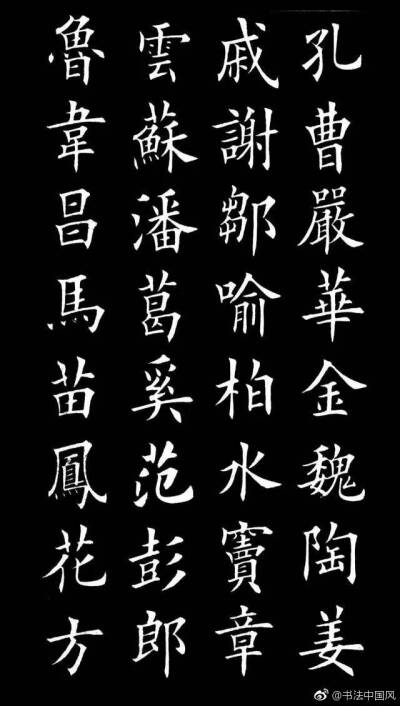 孔曹嚴華金魏陶姜
戚謝鄒喻柏水竇章
雲蘇潘葛奚范彭郎
魯韋昌馬苗鳳花方
@书法中国风